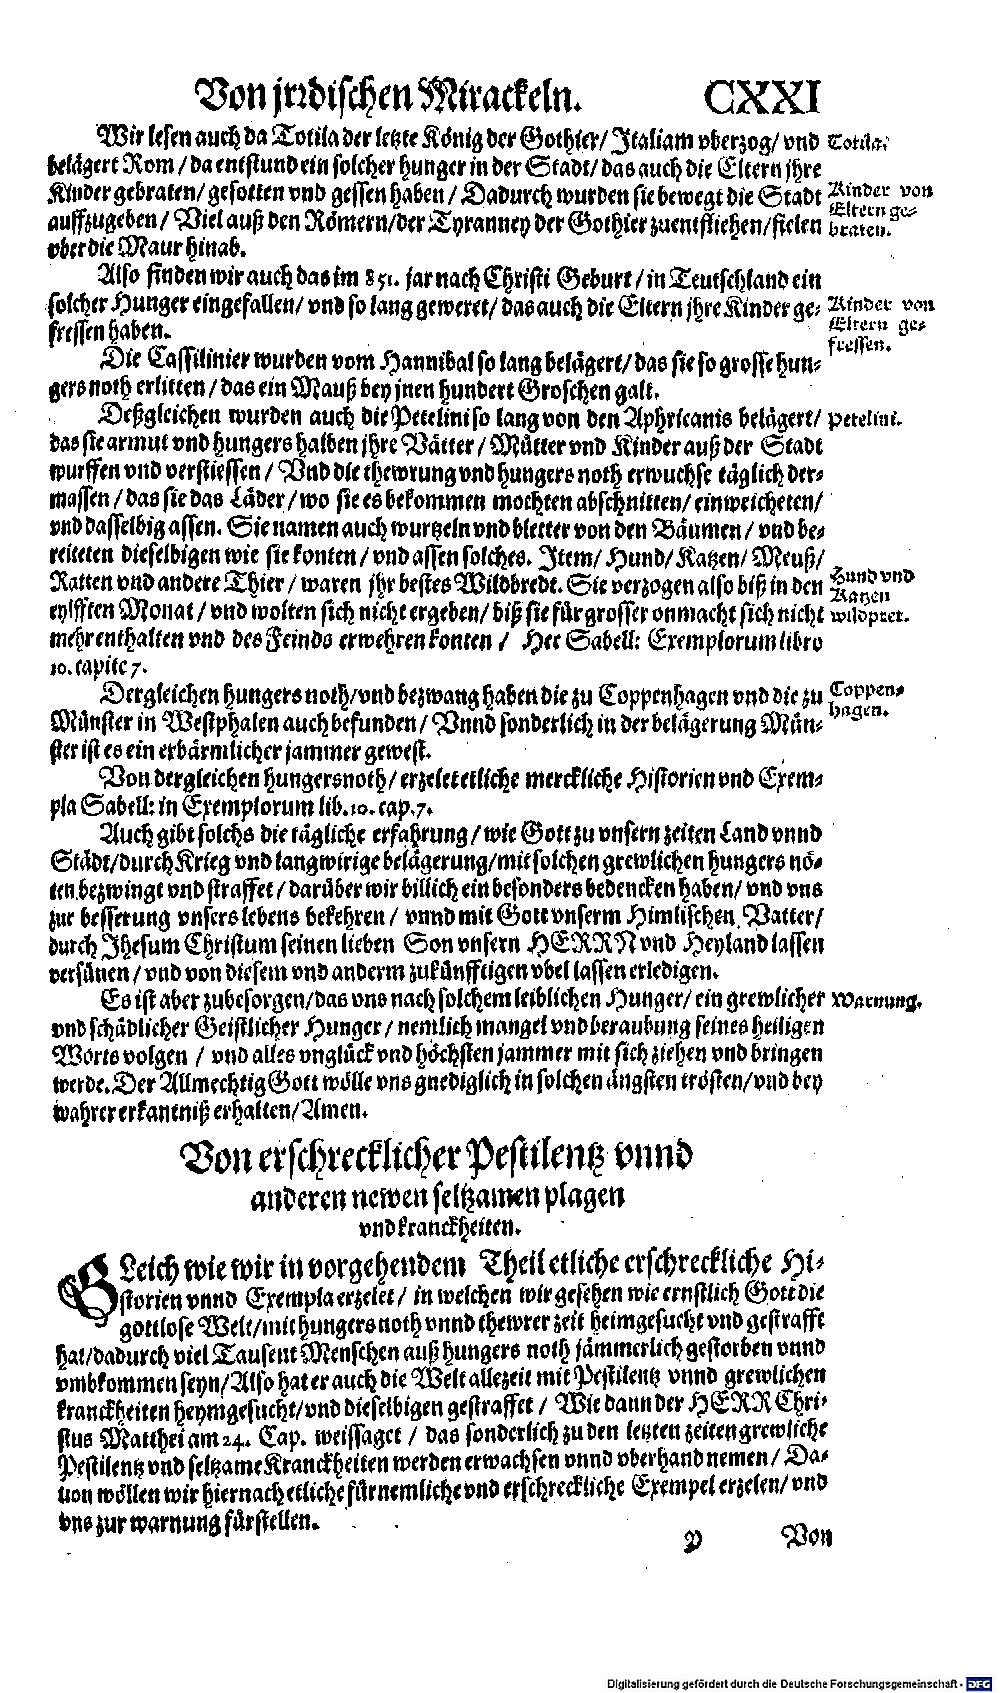 Von jrꝛdischen Mirackeln. CXXI
Wir lesen auch da Totila der letzte König der Gothier/ Italiam vberzog/ vnd
Totila.
belägert Rom / da entstund ein solcher hunger in der Stadt/ das auch die Eltern jhre
Kinder gebraten/ gesotten vnd gessen haben / Dadurch wurden sie bewegt die Stadt
Kinder von
auffzugeben / Viel auß den Römern/der Tyranney der Gothier zuentfliehen/fielen
Eltern ge-
braten.
vber die Maur hinab.
Also finden wir auch das im 851. jar nach Christi Geburt / in Teutschland ein
solcher Hunger eingefallen/ vnd so lang geweret/ das auch die Eltern jhre Kinder ge-
Kinder von
fressen haben.
Eltern ge-
fressen.
Die Cassilinier wurden vom Hannibal so lang belägert/ das sie so grosse hun-
gers noth erlitten / das ein Mauß bey jnen hundert Groschen galt.
Deßgleichen wurden auch die Petelini so lang von den Aphricanis belägert/
Petelini.
das sie armut vnd hungers halben jhre Vätter / Mütter vnd Kinder auß der Stadt
wurffen vnd verstiessen / Vnd die thewrung vnd hungers noth erwuchse täglich der-
massen / das sie das Läder/ wo sie es bekommen mochten abschnitten/ einweicheten/
vnd dasselbig assen. Sie namen auch wurtzeln vnd bletter von den Bäumen / vnd be-
reiteten dieselbigen wie sie konten / vnd assen solches. Item/ Hund/ Katzen/ Meuß/
Ratten vnd andere Thier / waren jhr bestes Wildbredt. Sie verzogen also biß in den
Hund vnd
Katzen
eylfften Monat / vnd wolten sich nicht ergeben/ biß sie für grosser onmacht sich nicht
wildpret.
mehr enthalten vnd des Feinds erwehren konten / Hec Sabell: Exemplorum libro
10. capite 7.
Dergleichen hungers noth/ vnd bezwang haben die zu Coppenhagen vnd die zu
Coppen-
hagen.
Münster in Westphalen auch befunden / Vnnd sonderlich in der belägerung Mün-
ster ist es ein erbärmlicher jammer gewest.
Von dergleichen hungersnoth/ erzelet etliche merckliche Historien vnd Exem-
pla Sabell: in Exemplorum lib. 10. cap. 7.
Auch gibt solchs die tägliche erfahrung / wie Gott zu vnsern zeiten Land vnnd
Städt/ durch Krieg vnd langwirige belägerung/ mit solchen grewlichen hungers nö-
ten bezwingt vnd straffet / darüber wir billich ein besonders bedencken haben/ vnd vns
zur besserung vnsers lebens bekehren / vnnd mit Gott vnserm Himlischen Vatter/
durch Jhesum Christum seinen lieben Son vnsern HERRN vnd Heyland lassen
versünen / vnd von diesem vnd anderm zukünfftigen vbel lassen erledigen.
Es ist aber zubesorgen/ das vns nach solchem leiblichen Hunger/ ein grewlicher
Warnung.
vnd schädlicher Geistlicher Hunger / nemlich mangel vnd beraubung seines heiligen
Worts volgen / vnd alles vnglück vnd höchsten jammer mit sich ziehen vnd bringen
werde. Der Allmechtig Gott wölle vns gnediglich in solchen ängsten trösten/ vnd bey
wahrer erkantniß erhalten/ Amen.
Von erschrecklicher Pestilentz vnnd
anderen newen seltzamen plagen
vnd kranckheiten.
GLeich wie wir in vorgehendem Theil etliche erschreckliche Hi-
storien vnnd Exempla erzelet / in welchen wir gesehen wie ernstlich Gott die
gottlose Welt/ mit hungers noth vnnd thewrer zeit heimgesucht vnd gestrafft
hat/dadurch viel Tausent Menschen auß hungers noth jämmerlich gestorben vnnd
vmbkommen seyn/ Also hat er auch die Welt allezeit mit Pestilentz vnnd grewlichen
kranckheiten heymgesucht/ vnd dieselbigen gestraffet / Wie dann der HERR Chri-
stus Matthei am 24. Cap. weissaget / das sonderlich zu den letzten zeiten grewliche
Pestilentz vnd seltzame Kranckheiten werden erwachsen vnnd vberhand nemen / Da-
uon wöllen wir hiernach etliche fürnemliche vnd erschreckliche Exempel erzelen/ vnd
vns zur warnung fürstellen.
Y Von
Digitalisierung gefördert durch die Deutsche Forschungsgemeinschaft - DFG